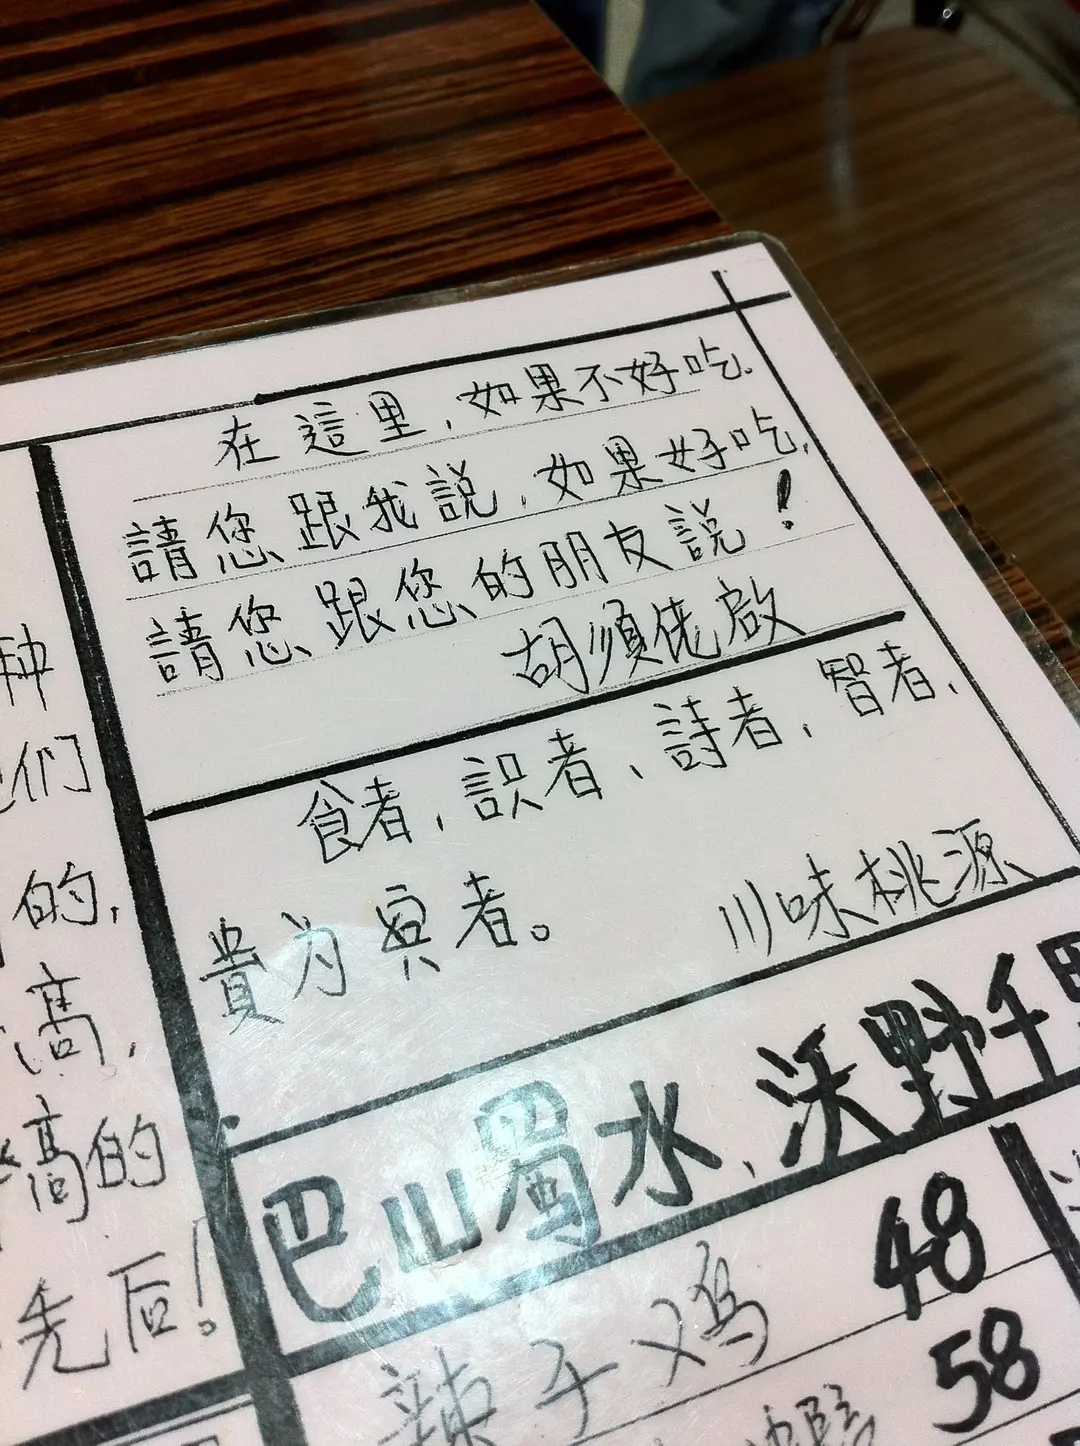 在這里,如果不好吃.
請您跟我説,如果好吃,
請您跟您的朋友説!
胡須佬啟
食者,識者、詩者,智者,
貴为宾者。
川味桃源
巴山蜀水,沃野千
辣子鸡 48
58
种
们
的,
高,
高的
先后!